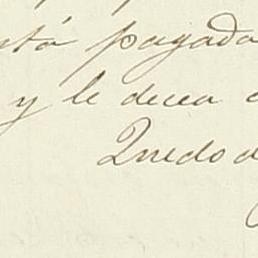 stá pagada
y le decea
Quedo d